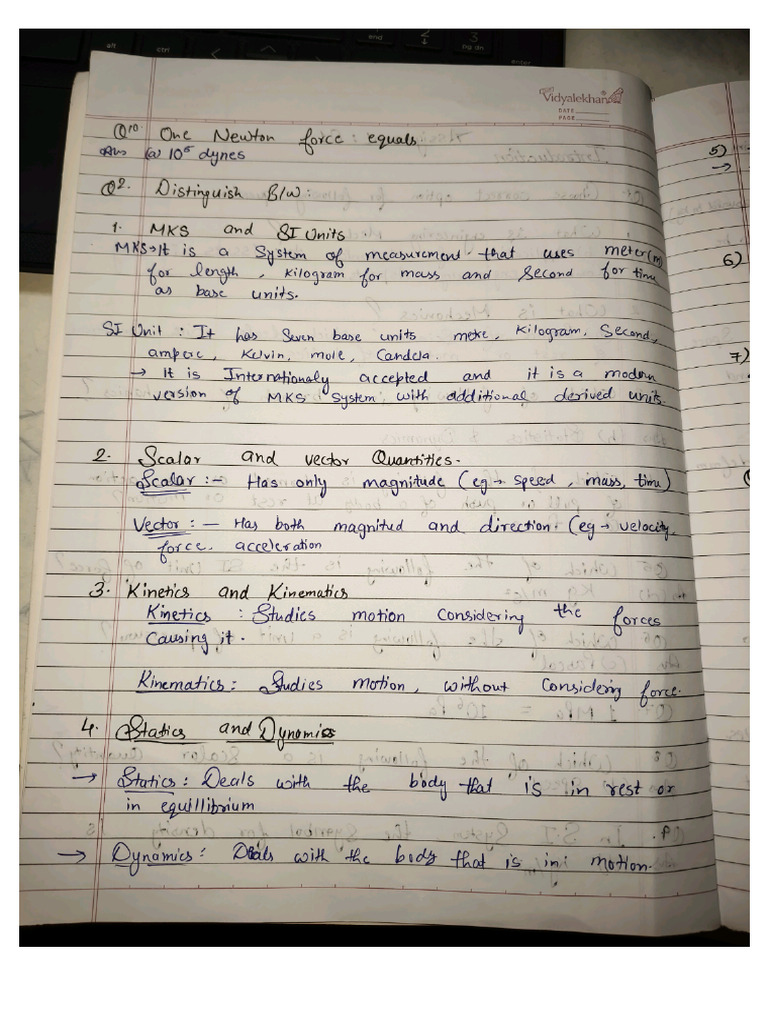 Vidyalekhan
DATE
PAGE
Q10. One Newton force : equals
Ans (a) 10⁵ dynes
Q2. Distinguish B/W :
1. MKS and SI Units
MKS→It is a System of measurement that uses meter(m)
for length, kilogram for mass and second for time
as base units.
SI Unit : It has Seven base units metre, kilogram, Second,
ampere, Kelvin, mole, Candela.
→ It is Internationaly accepted and it is a modern
version of MKS System with additional derived units.
2. Scalar and vector Quantities.
Scalar :- Has only magnitude (eg → speed, mass, time)
Vector :- Has both magnitud and direction. (eg → velocity,
force, acceleration
3. Kinetics and Kinematics
Kinetics : Studies motion Considering the forces
Causing it.
Kinematics : Studies motion, without Considering force.
4. Statics and Dynamics
→ Statics : Deals with the body that is in rest or
in equillibrium
→ Dynamics : Deals with the body that is in motion.
5)
→
6)
7)